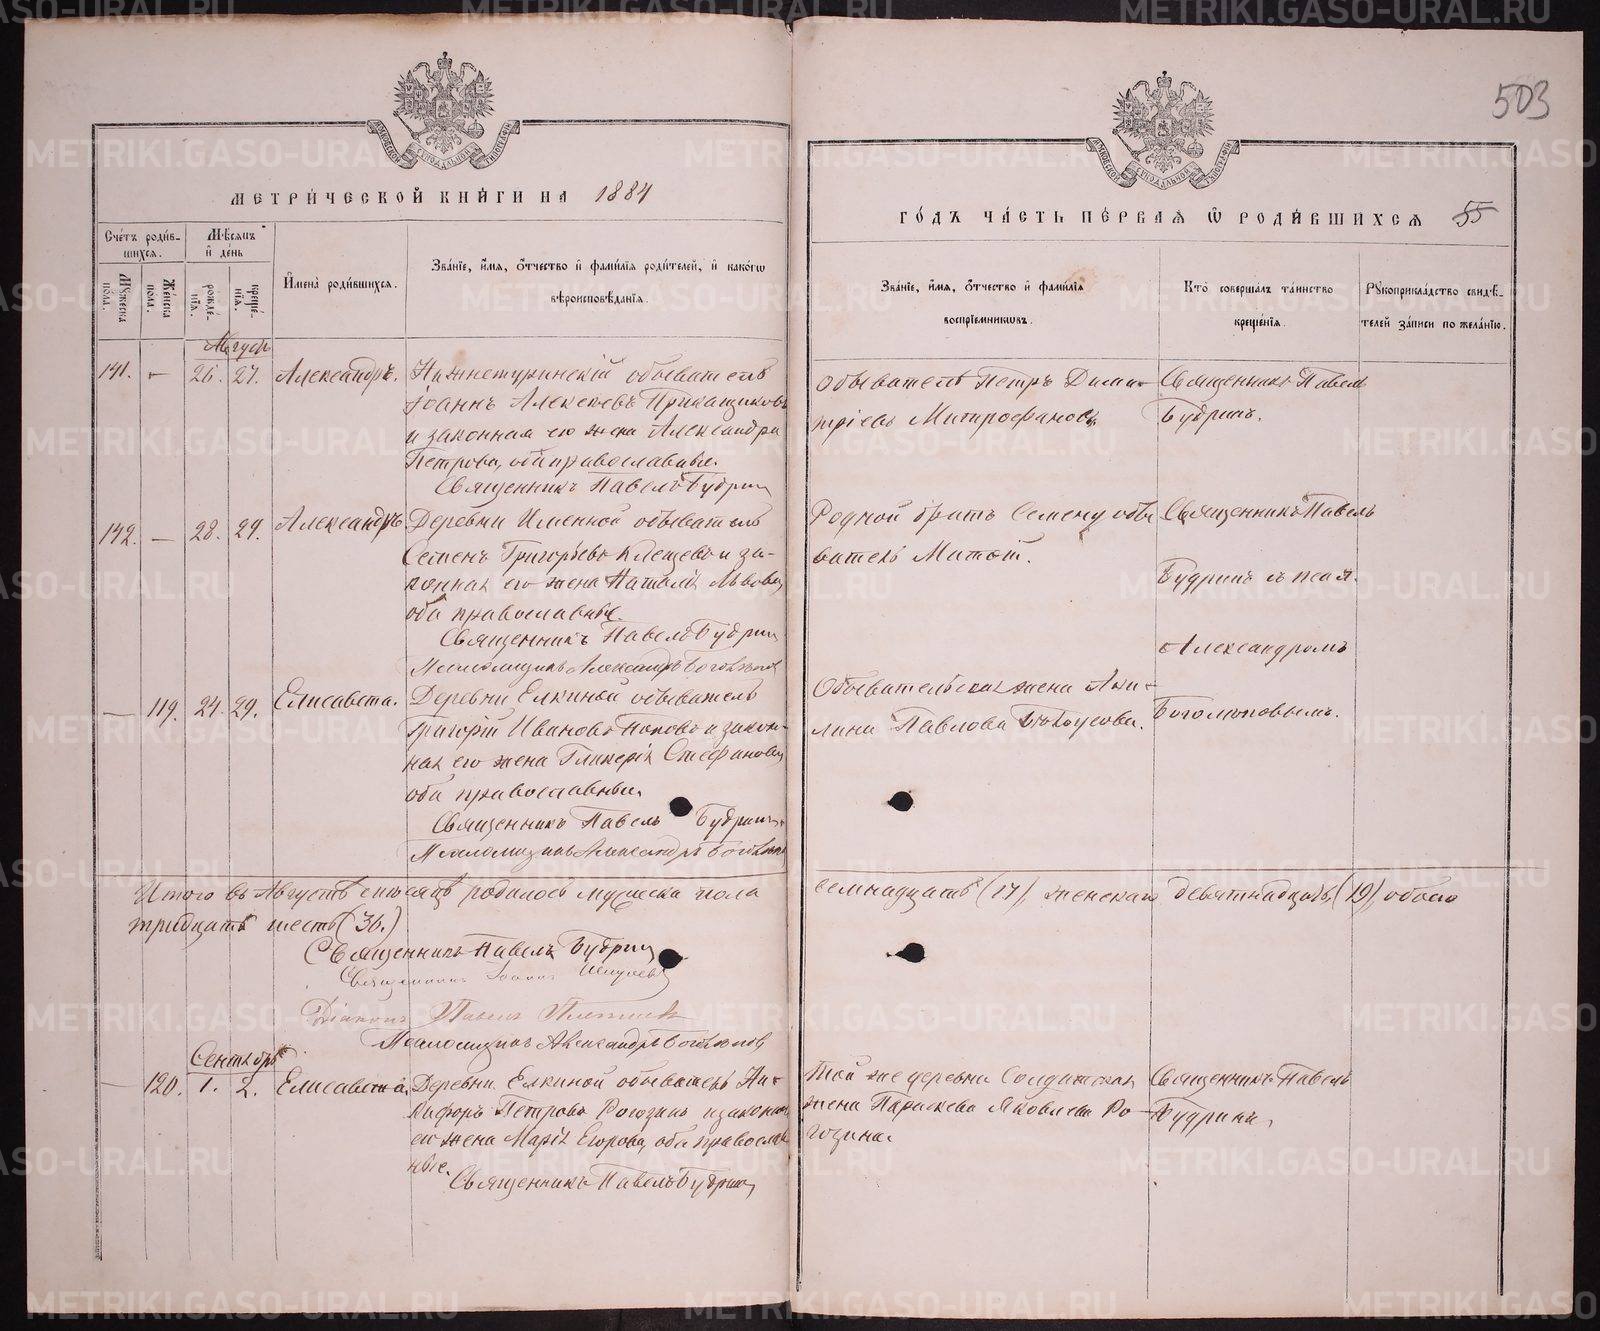 503
МЕТРИ́ЧЕСКОЙ КНИ́ГИ НА 1884
ГО́ДЪ ЧА́СТЬ ПЕ́РВАѦ Ѡ РОДИ́ВШИХСѦ 55
Счётъ роди́вшихся.
Мѣ́сяцъ и де́нь
Му́жеска по́ла.
Же́нска по́ла.
рожде́нїѧ.
креще́нїѧ.
И҆мена̀ роди́вшихсѧ.
Зва́нїе, и҆́мѧ, ѻ҆́тчество и҆ фами́лїѧ роди́телей, и҆ како́гѡ
вѣроисповѣ́данїѧ.
Зва́нїе, и҆́мѧ, ѻ҆́тчество и҆ фами́лїѧ
воспрїе́мникѡвъ.
Кто̀ соверша́лъ та́инство
креще́нїѧ.
Рꙋкоприкла́дство свидѣ́-
телей за́писи по жела́нїю.
Августъ
141. — 26. 27. Александръ.
Нижнетуринскій обыватель
Іоаннъ Алексѣевъ Прикащиковъ
и законная его жена Александра
Петрова, оба православные.
Священникъ Павелъ Будринъ
Обыватель Петръ Дими-
тріевъ Митрофановъ
Священникъ Павелъ
Будринъ.
142. — 28. 29. Александръ.
Деревни Именной обыватель
Семенъ Григорьевъ Клещевъ и за-
конная его жена Наталія Львова,
оба православные.
Священникъ Павелъ Будринъ
Псаломщикъ Александръ Боголюбовъ
Родной братъ Семену обы-
ватель
Священникъ Павелъ
Будринъ съ псал.
Александромъ
Боголюбовымъ.
— 119. 24. 29. Елисавета.
Деревни Елкиной обыватель
Григорій Ивановъ Поповъ и закон-
ная его жена Гликерія Стефанова,
оба православные.
Священникъ Павелъ Будринъ
Псаломщикъ Александръ Боголюбовъ
Обывательская жена Аки-
лина Павлова
Итого въ Августѣ мѣсяцѣ родилось мужеска пола
семнадцать (17), женскаго девятнадцать (19), обоего
тридцать шесть (36.)
Священникъ Павелъ Будринъ
Священникъ Іоаннъ
Діаконъ Павелъ
Псаломщикъ Александръ Боголюбовъ
Сентябрь
— 120. 1. 2. Елисавета.
Деревни Елкиной обыватель Ни-
кифоръ Петровъ Рогозинъ и законная
его жена Марія Егорова, оба православ-
ные.
Священникъ Павелъ Будринъ
Той же деревни Солдатская
жена Параскева Яковлева Ро-
гозина.
Священникъ Павелъ
Будринъ.
METRIKI.GASO-URAL.RU